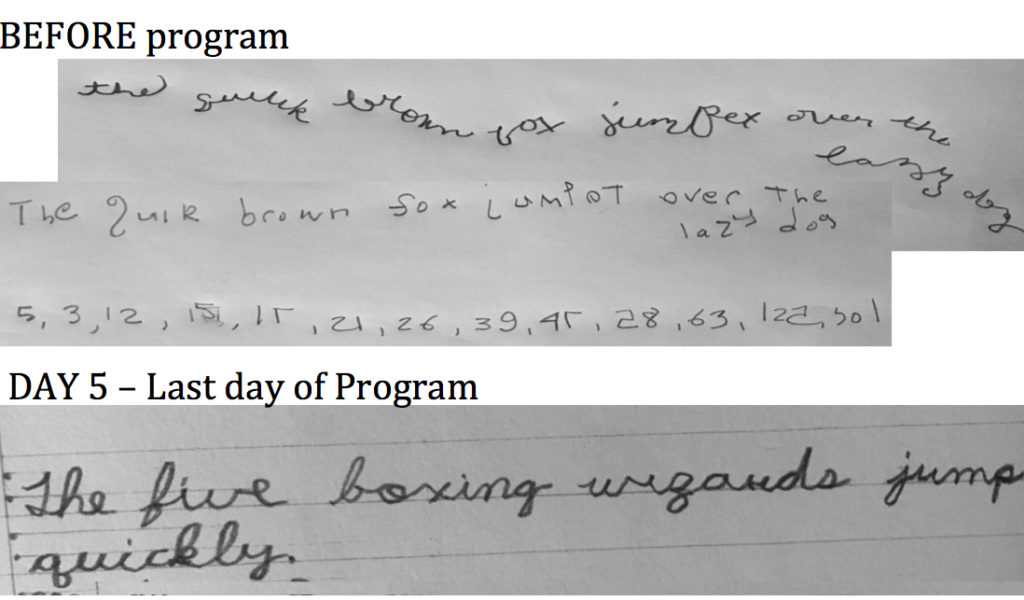 BEFORE program
the quick brown fox jumpex over the
lazy dog
The Quik brown fox jumpot over The
lazy dog
5, 3, 12, 15, 15, 21, 26, 39, 45, 28, 63, 122, 501
DAY 5 – Last day of Program
The five boxing wizards jump
quickly.